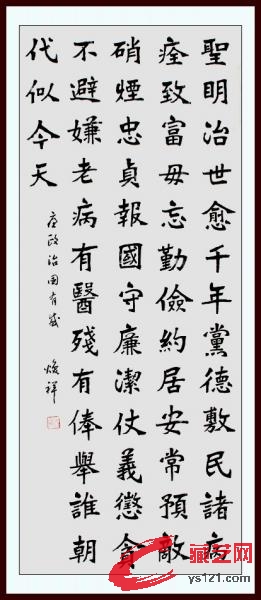 聖明治世愈千年黨德敷民諸病
痊致富毋忘勤儉約居安常預敵
硝煙忠貞報國守廉潔仗義懲貪
不避嫌老病有醫殘有俸舉誰朝
代似今天
政治国有感
祥
藏艺网
ys121.com